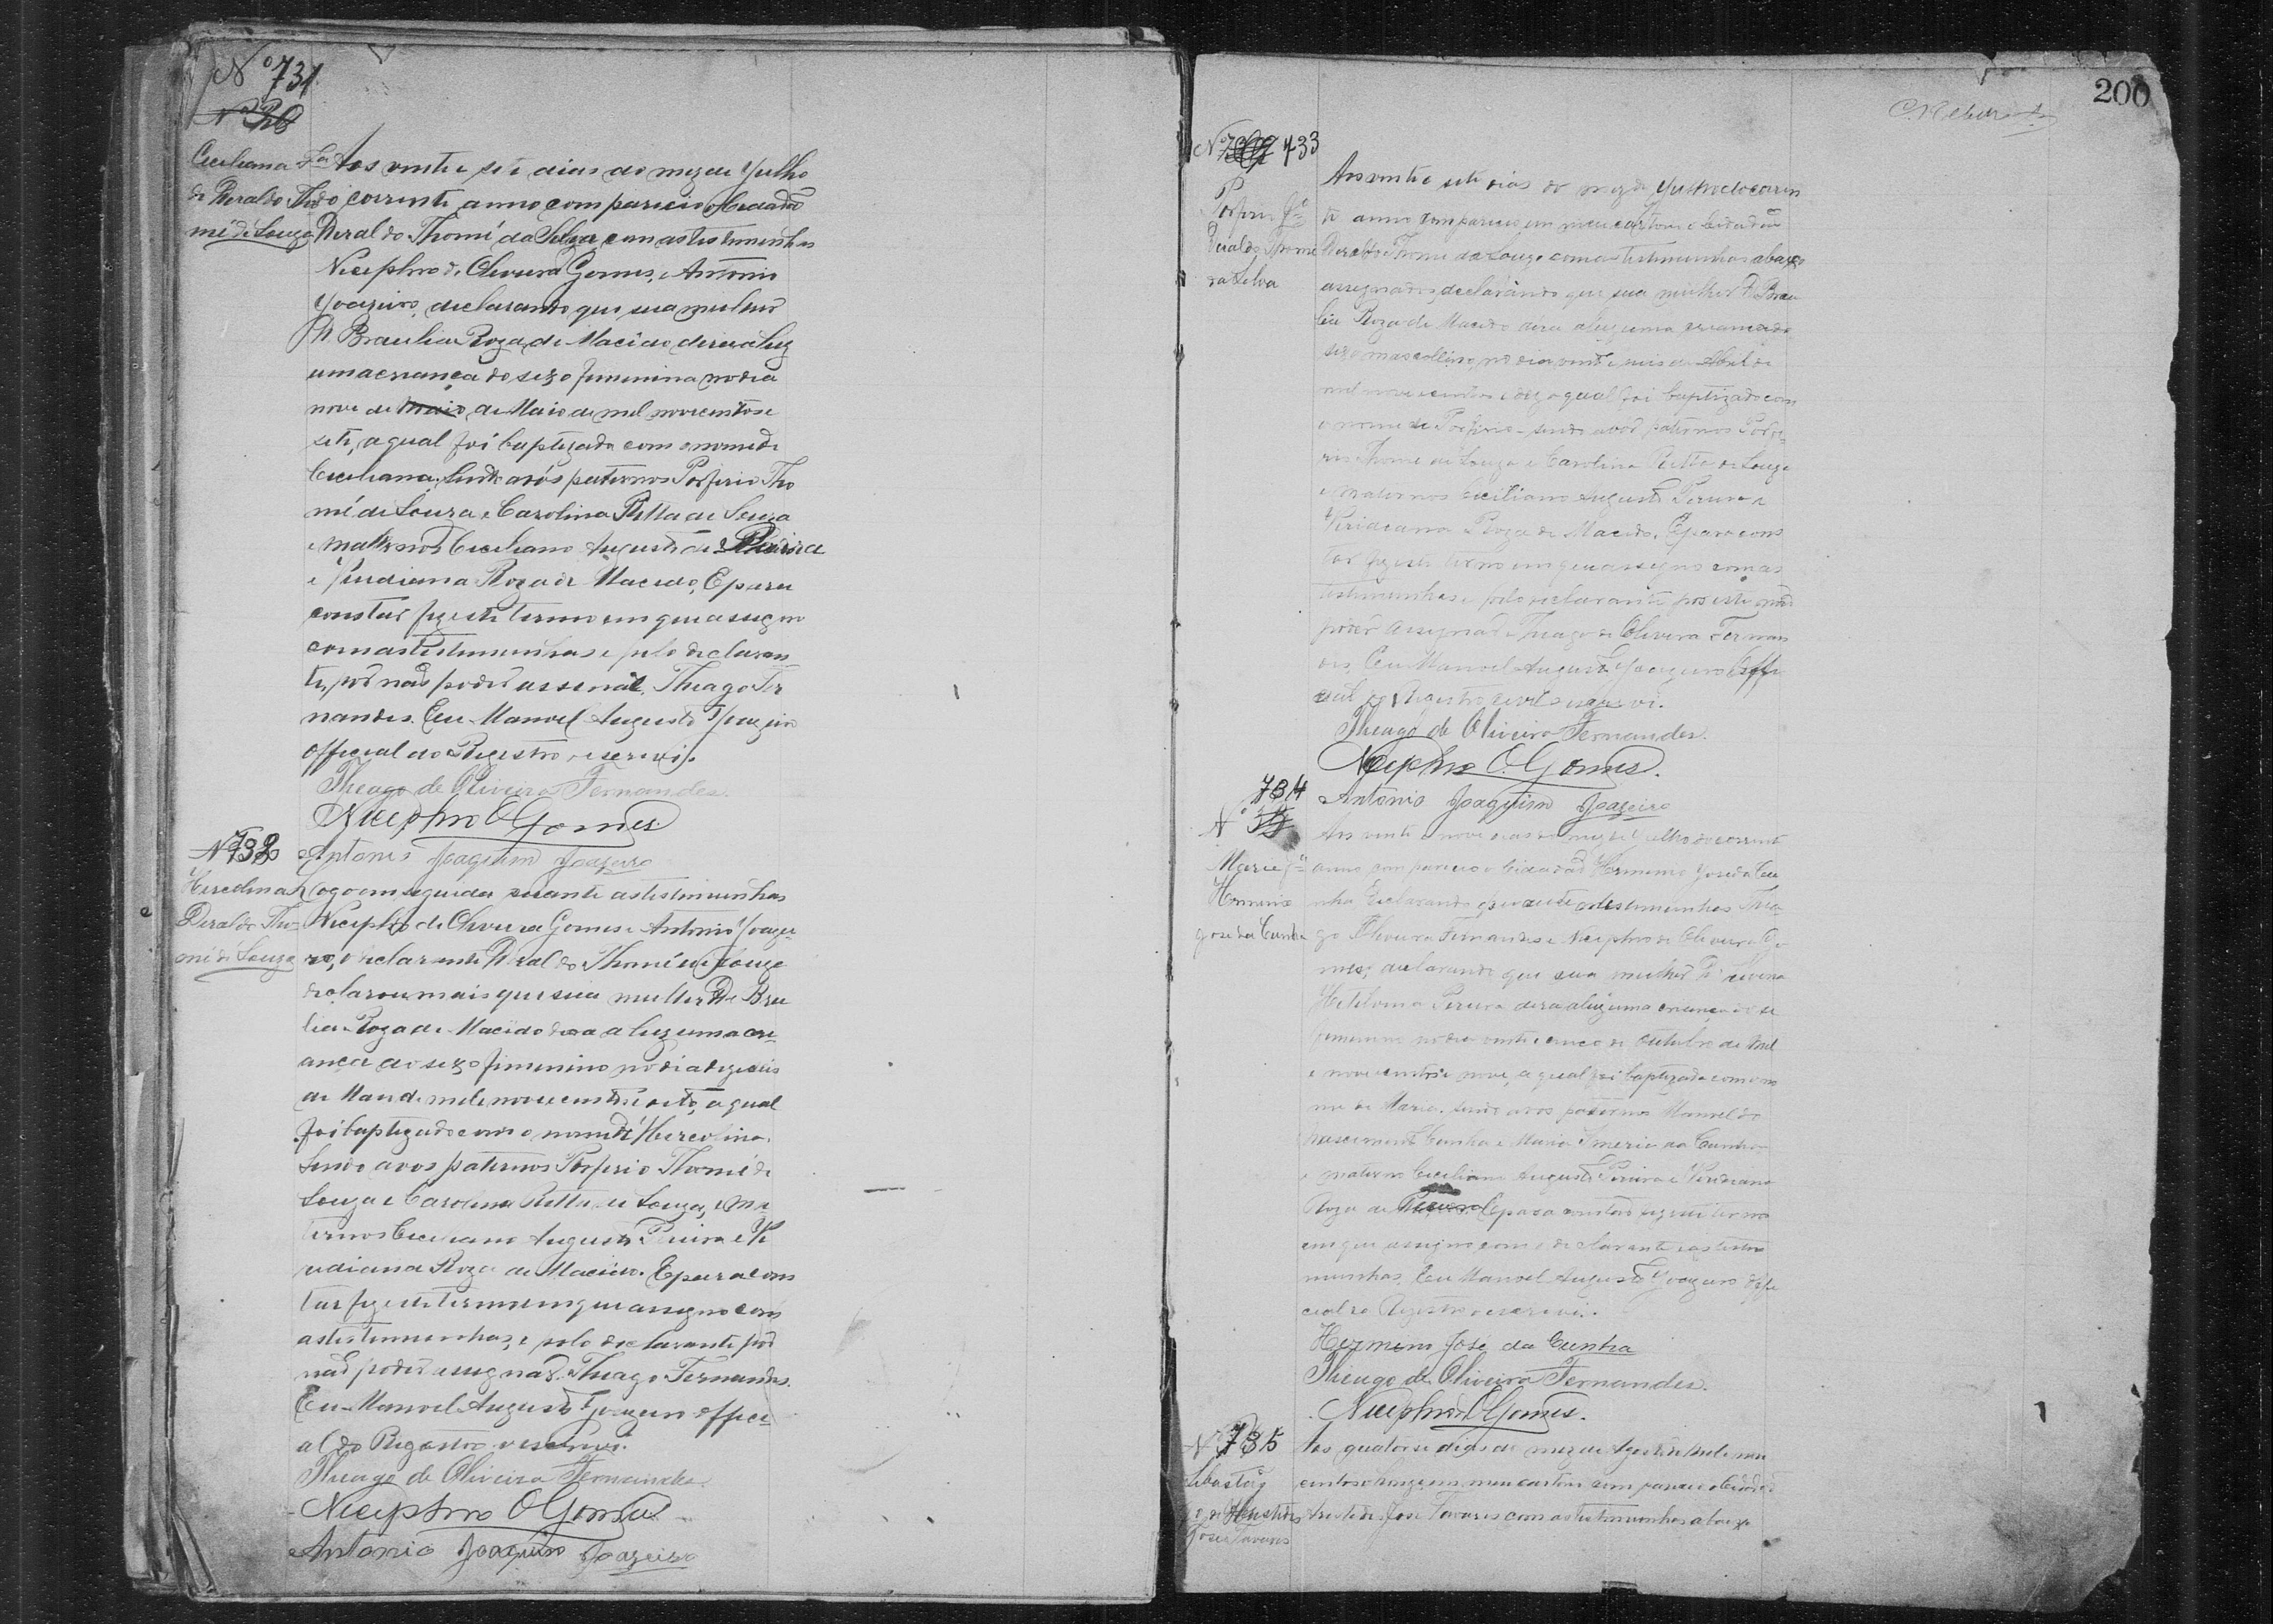 Nº 731
Ceciliana Fa
de Deraldo Tho
mé de Souza
Aos vinte e sete dias do mez de Julho
do corrente anno compareceo o Cidadão
Deraldo Thomé da Selva com as testemunhas
Nicephro de Oliveira Gomes, e Antonio
Joazeiro, declarando que sua mulher
D. Braulia Roza de Macedo dera á luz
uma creança do sexo feminina no dia
nove de maio de Maio de mil novecentos e
sete, a qual foi baptizada com o nome de
Ceciliana. Sendo avós paternos Porfirio Tho
mé de Souza e Carolina Ritta de Souza
e maternos Ceciliano Augusto de Pereira
e Viridiana Roza de Macedo, E para
constar fiz este termo em que assigno
com as testemunhas e pelo declaran
te, por não poder assenar Thiago Fer
nandes. Eu Manoel Augusto Joazeiro
official do Registro, escrevi.
Thiago de Oliveira Fernandes.
Nicephro O Gomes.
Antonio Joaquim Joazeiro
Nº 732
Hercolina
Deraldo Tho-
mé de Souza
Logo em seguida perante as testemunhas
Nicephro de Oliveira Gomes e Antonio Joazei-
ro, o declarante Deraldo Thomé de Souza
declarou mais que sua mulher D. Brau
lia Roza de Macedo dera a luz uma cre-
ança do sexo feminino no dia dezeseis
de Maio de mil e novecentos e oito, a qual
foi baptizado com o nome de Hercolina.
Sendo avos paternos Porfirio Thomé de
Souza e Carolina Ritta de Souza, e ma-
ternos Ceciliano Augusto Pereira e Vi
ridiana Roza de Macedo. E para cons
tar fiz este termo em que assigno com
as testemunhas, e pelo declarante por
não poder assegnar Thiago Fernandes.
Eu Manoel Augusto Joazeiro offici-
al do Registro o escrevi.
Thiago de Oliveira Fernandes.
Nicephro O Gomes
Antonio Joaquim Joazeiro
200
Nº 733
Porfirio Fo
Deraldo Thome
da Selva
Aos vinte e sete dias do mez de Julho do corren
te anno compareceo em meu cartorio o Cidadão
Deraldo Thome da Souza com as testemunhas abaixo
assignados, declarando que sua mulher D. Brau
lia Roza de Macedo dera a luz uma creança do
sexo mascolino, no dia vinte e seis de Abril de
mil nove centos e dez o qual foi baptizado com
o nome de Porfirio - sendo avos paternos Porfi-
rio Thome de Souza e Carolina Ritta de Souza
e maternos Ceciliano Augusto Pereira e
Viridiana Roza de Macedo. E para cons
tar fiz este termo em que assigno com as
testemunhas e pelo declarante por este não
poder assignar Thiago de Oliveira Fernan
des, Eu Manoel Augusto Joazeiro Offi
cial do Registro Civil o escrevi.
Thiago de Oliveira Fernandes.
Nicephro O. Gomes.
Antonio Joaquim Joazeiro
734
Nº
Maria Fa
Hermino
Jose da Cunha
Aos vinte e nove dias do mez de Julho do corrente
anno compareceo o Cidadão Hermino Jose da Cu
nha declarando perante as testemunhas Thia-
go Oliveira Fernandes e Nicephro de Oliveira Go
mes, declarando que sua mulher D.
Pereira dera a luz uma creança do se
femenino no dia vinte e cinco de Outubro de mil
e nove centos e nove, a qual foi baptizada com o no
me de Maria. Sendo avos paternos Manoel do
Nascimento Cunha e Maria da Cunha
e materno Ceciliano Augusto Pereira e Viridiana
Roza de Pereira E para constar fiz este termo
em que assigno com o declarante e as teste
munhas. Eu Manoel Augusto Joazeiro Offi
cial do Registro o escrevi.
Hermino José da Cunha
Thiago de Oliveira Fernandes.
Nicephro O Gomes.
Nº 735
Sebastião
José Tavares
Aos quatorse dias do mez de Agosto de mil e nove
centos e em meu cartorio compareceo o Cidadão
José Tavares com as testemunhas abaixo